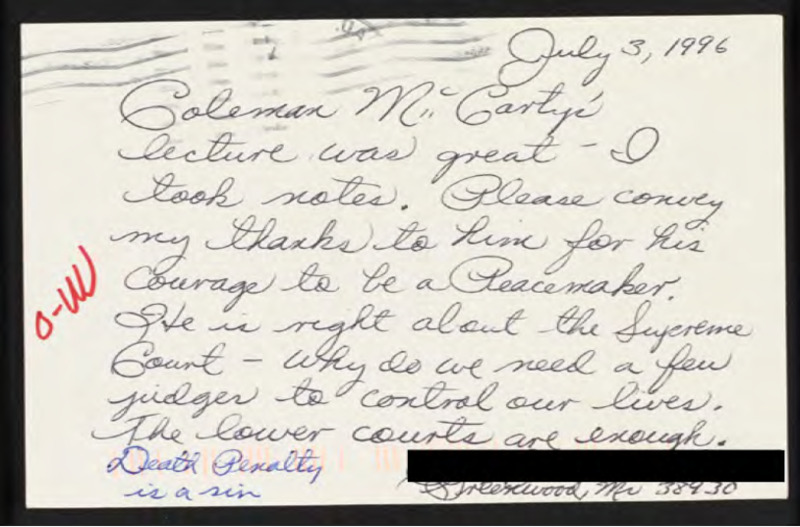 July 3, 1996
Coleman Mc Carty's
lecture was great - I
took notes. Please convey
my thanks to him for his
courage to be a Peacemaker.
He is right about the Supreme
Court - Why do we need a few
judges to control our lives.
The lower courts are enough.
Death Penalty
is a sin
Greenwood, Ms 38930